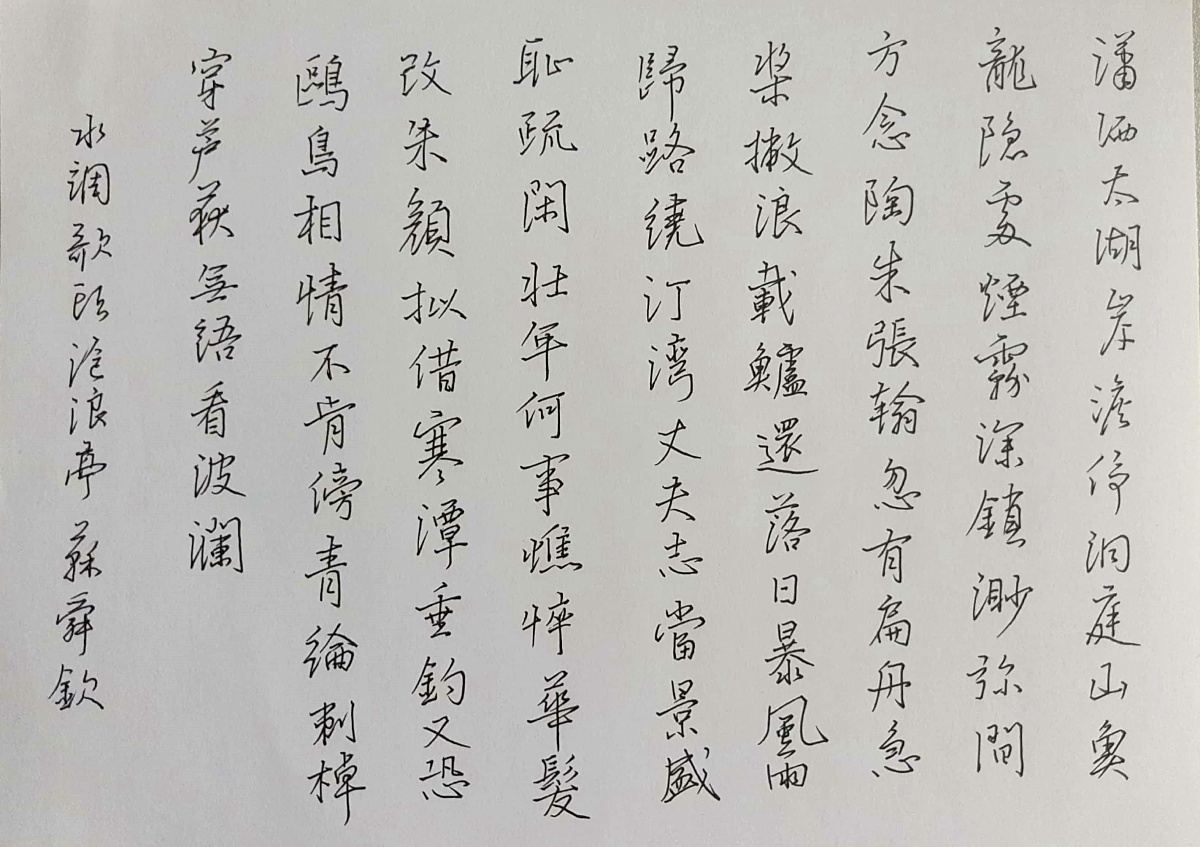 潇洒太湖岸澹伫洞庭山魚
龍隐處煙霧深鎖渺弥間
方念陶朱張翰忽有扁舟急
槳撇浪載鱸還落日暴風雨
歸路繞汀湾丈夫志當景盛
恥疏閑壯年何事憔悴華髮
改朱顏拟借寒潭垂釣又恐
鷗鳥相猜不肯傍青綸刺棹
穿芦荻無語看波瀾
水調歌頭沧浪亭蘇舜欽